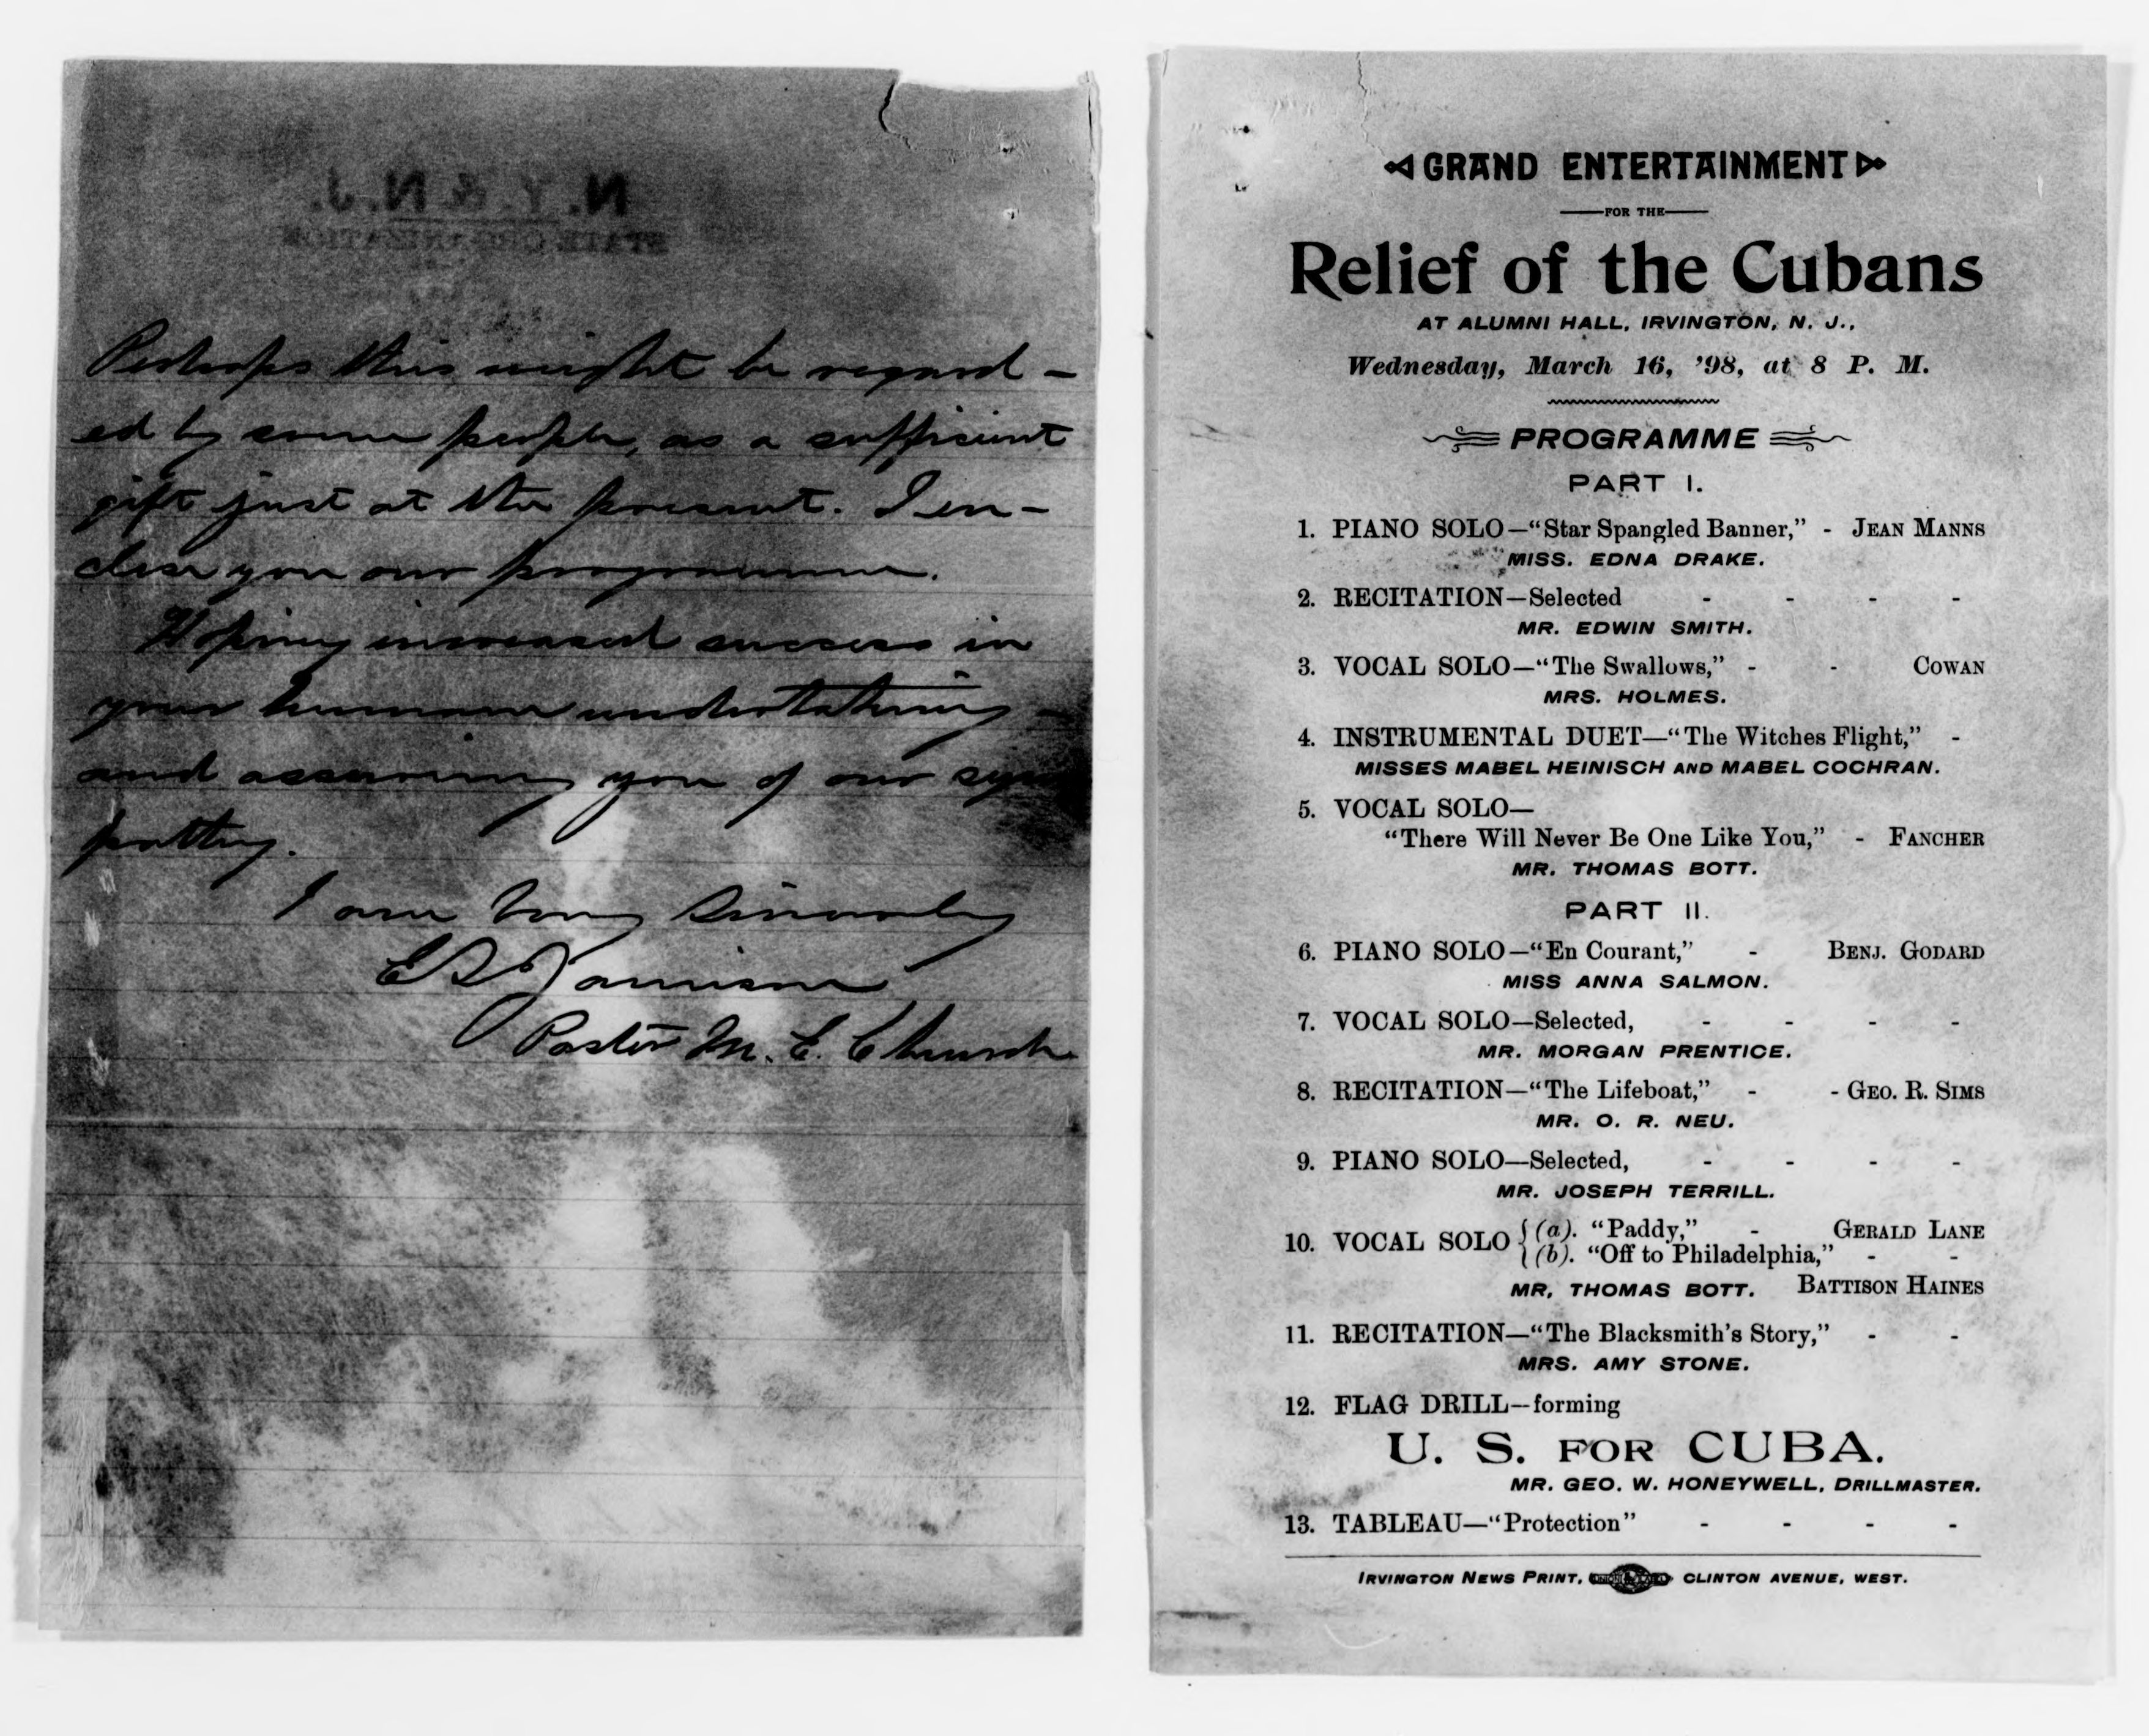 N. Y. & N. J.
STATE ORGANIZATION
Perhaps this might be regard-
ed by some people, as a sufficient
gift just at the present. I en-
close you our programme.
Hoping increased success in
your humane undertaking -
and assuring you of our sym
pathy.
I am Very Sincerely
E S Jamison
Pastor M. E. Church
GRAND ENTERTAINMENT
FOR THE
Relief of the Cubans
AT ALUMNI HALL, IRVINGTON, N. J.,
Wednesday, March 16, '98, at 8 P. M.
PROGRAMME
PART I.
1. PIANO SOLO—“Star Spangled Banner,” - JEAN MANNS
MISS. EDNA DRAKE.
2. RECITATION—Selected - - - -
MR. EDWIN SMITH.
3. VOCAL SOLO—“The Swallows,” - - COWAN
MRS. HOLMES.
4. INSTRUMENTAL DUET—“The Witches Flight,” -
MISSES MABEL HEINISCH AND MABEL COCHRAN.
5. VOCAL SOLO—
“There Will Never Be One Like You,” - FANCHER
MR. THOMAS BOTT.
PART II.
6. PIANO SOLO—“En Courant,” - BENJ. GODARD
MISS ANNA SALMON.
7. VOCAL SOLO—Selected, - - - -
MR. MORGAN PRENTICE.
8. RECITATION—“The Lifeboat,” - - GEO. R. SIMS
MR. O. R. NEU.
9. PIANO SOLO—Selected, - - - -
MR. JOSEPH TERRILL.
10. VOCAL SOLO { (a). “Paddy,” - GERALD LANE
(b). “Off to Philadelphia,” - -
MR, THOMAS BOTT. BATTISON HAINES
11. RECITATION—“The Blacksmith's Story,” - -
MRS. AMY STONE.
12. FLAG DRILL—forming
U. S. FOR CUBA.
MR. GEO. W. HONEYWELL, DRILLMASTER.
13. TABLEAU—“Protection” - - - -
IRVINGTON NEWS PRINT, CLINTON AVENUE, WEST.